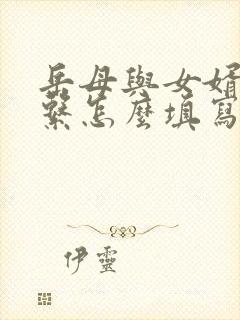 岳母與女婿
繫怎麼填寫
伊靈